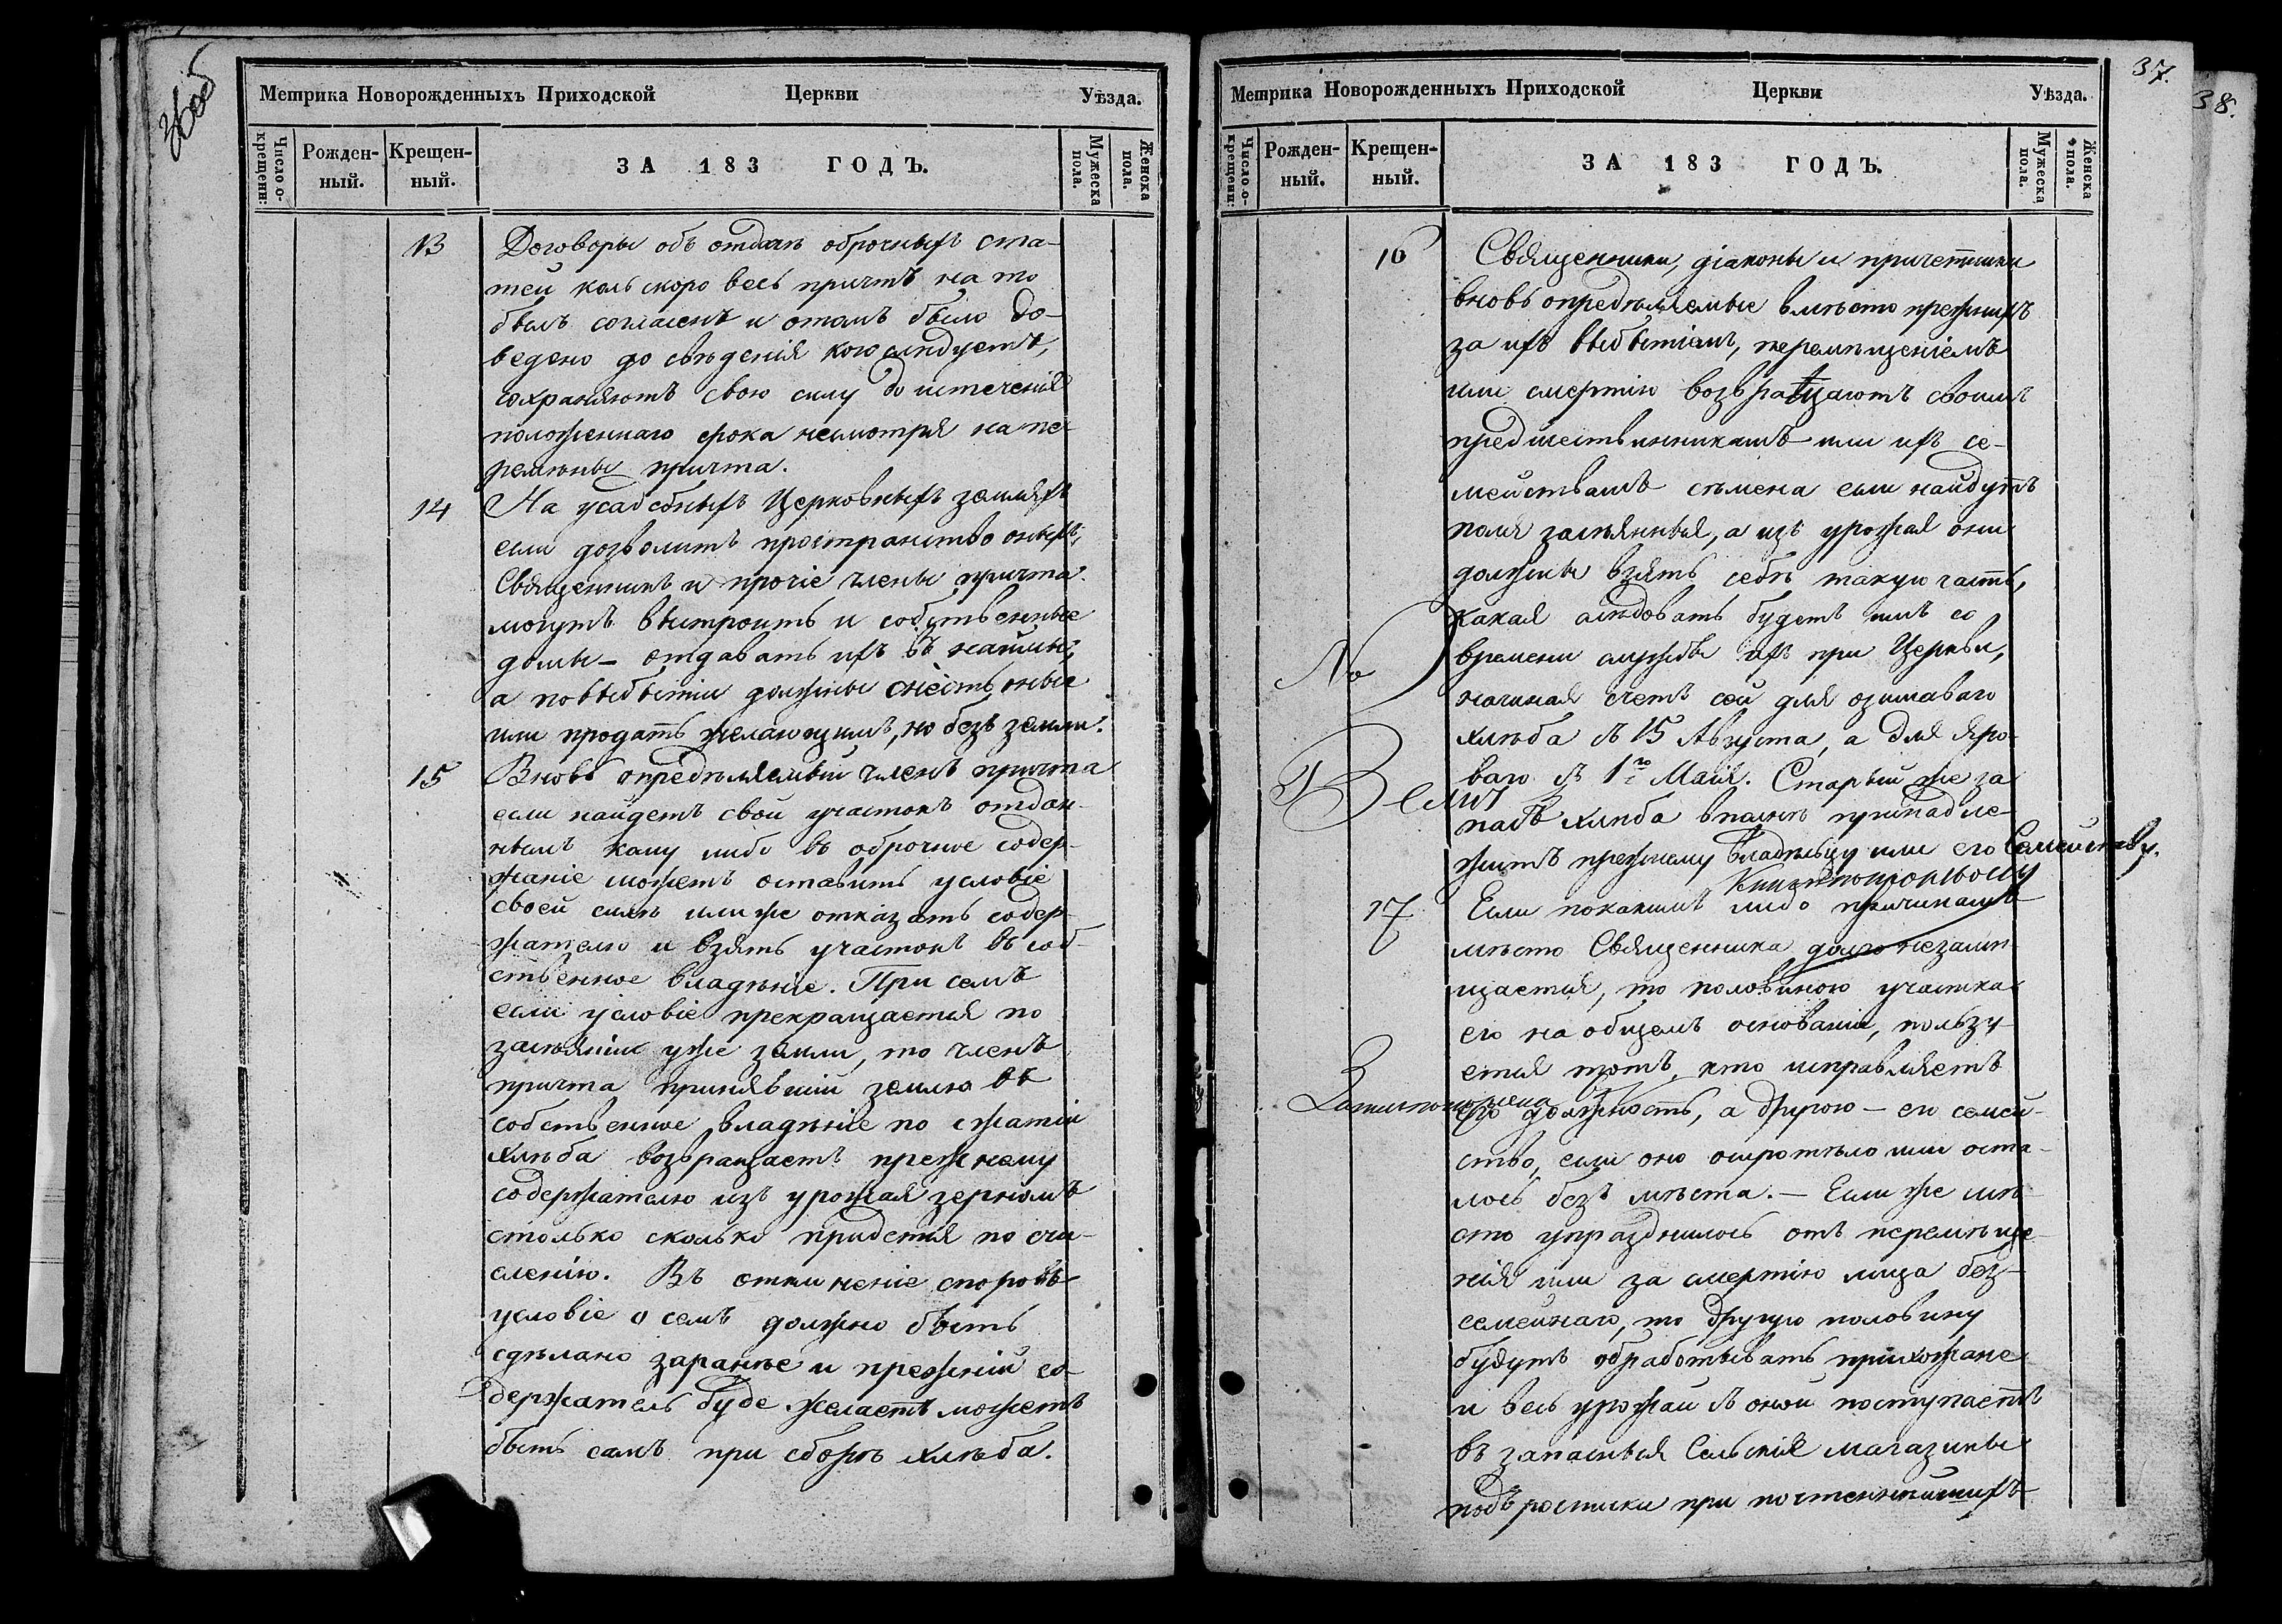 Метрика Новорожденныхъ Приходской Церкви Уѣзда.
Число о-крещенн: Рожден-ный. Крещен-ный. ЗА 183 ГОДЪ. Мужеска пола. Женска пола.
13 Договоры объ отдачѣ оброчныхъ ста-
тей коль скоро весь причтъ на то
былъ согласенъ и отомъ было до-
ведено до свѣденія кого слѣдуетъ,
сохраняютъ свою силу до истеченія
положеннаго срока несмотря на пе-
ремѣны причта.
14 На усадебныхъ Церковныхъ земляхъ
если дозволитъ пространство оныхъ,
Священникъ и прочіе члены причта
могутъ выстроить и собственные
домы – отдавать ихъ въ наймы,
а повыбытіи должны снесть оные
или продать желающимъ, но безъ земли.
15 Вновь опредѣляемый членъ причта
если найдетъ свой участокъ отдан-
нымъ кому либо въ оброчное содер-
жаніе можетъ оставить условіе
своей силѣ или же отказать содер-
жателю и взять участокъ въ соб-
ственное владѣніе. При семъ
если условіе прекращается по
засѣяніи уже земли, то членъ
причта принявшій землю въ
собственное владѣніе по сжатіи
хлѣба возвращаетъ прежнему
содержателю изъ урожая зерномъ
столько сколько придется по счи-
сленію. Въ отклоненіе споровъ
условіе о семъ должно быть
сдѣлано заранѣе и прежній со-
держатель буде желаетъ можетъ
быть самъ при сборѣ хлѣба.
37.
38.
Метрика Новорожденныхъ Приходской Церкви Уѣзда.
Число о-крещенн: Рожден-ный. Крещен-ный. ЗА 183 ГОДЪ. Мужеска пола. Женска пола.
16 Священники, діаконы и причетники
вновь опредѣляемые вмѣсто прежнихъ
за ихъ выбытіемъ, перемѣщеніемъ
или смертію возвращаютъ своимъ
предшественникамъ или ихъ се-
мействамъ сѣмена если найдутъ
поля засѣянныя, а изъ урожая они
должны взять себѣ такую часть,
какая слѣдовать будетъ имъ со
времени службы ихъ при Церкви,
начиная счетъ сей для озимаваго
хлѣба съ 15 Августа, а для яро-
ваго съ 1го Маія. Старый же за
пасъ хлѣба вполнѣ принадле-
житъ прежнему владѣльцу или его Семейству.
17 Если покакимъ либо причинамъ
мѣсто Священника долго незамѣ-
щается, то половиною участка
его на общемъ основаніи, пользу-
ется тотъ, кто исправляетъ
его должность, а другою – его семей-
ство, если оно осиротѣло или оста-
лось безъ мѣста. – Если же мѣ-
сто упразднилось отъ перемѣще-
нія или за смертію лица без-
семейнаго, то другую половину
будутъ обработывать прихожане
и весь урожай съ оной поступаетъ
въ запасныя Сельскія магазины
подъ росписки при почтеннѣйшихъ